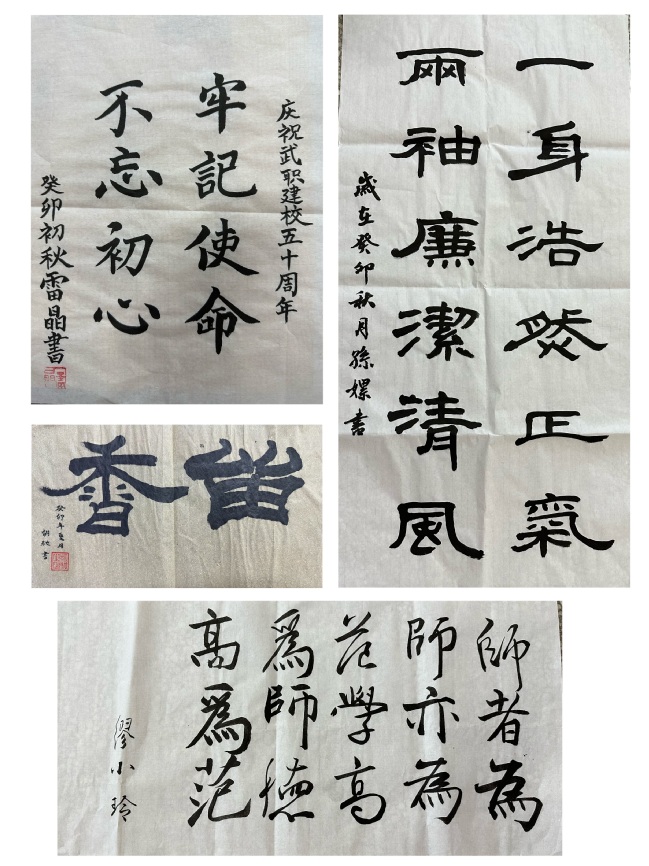 庆祝武职建校五十周年
牢記使命
不忘初心
癸卯初秋雷晶書
一身浩然正氣
兩袖廉潔清風
歲在癸卯秋月孫嫘書
留香
癸卯年夏月
師者為
師亦為
范學高
爲師德
高爲范
繆小玲